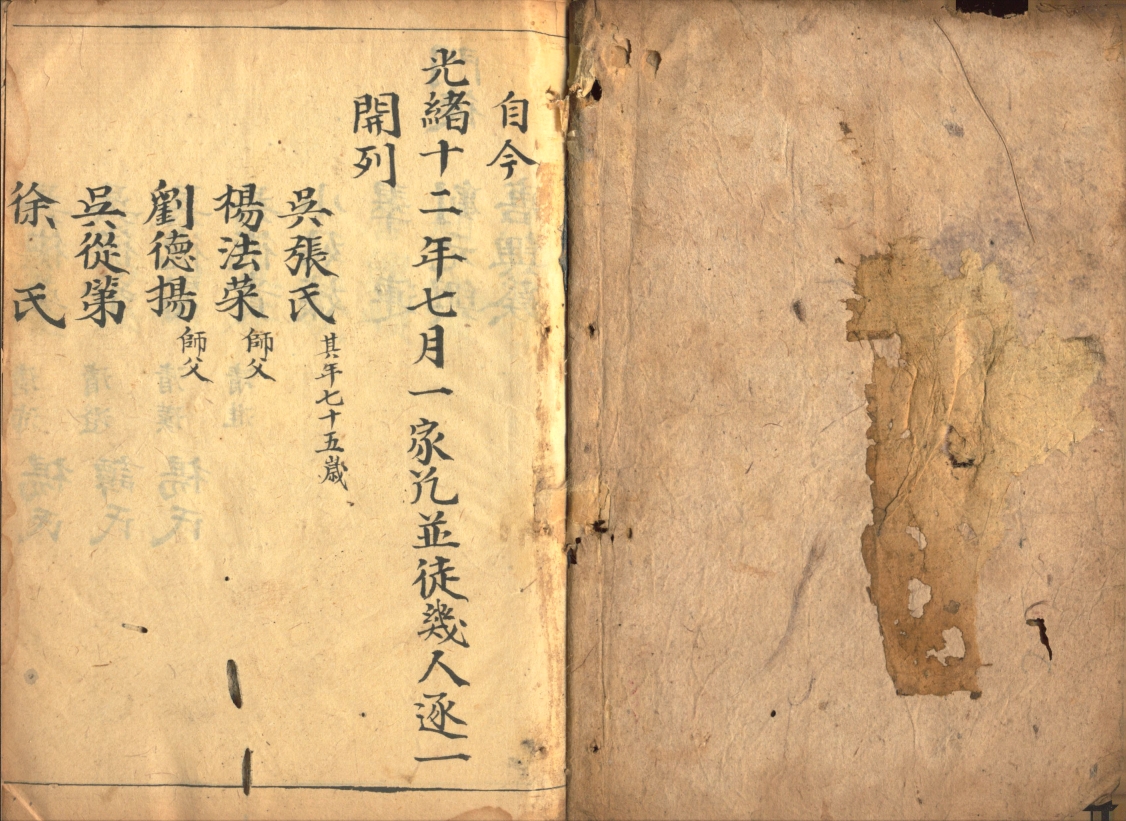 自今
光緒十二年七月一家凢並徒幾人逐一
開列
吳張氏 其年七十五歲
楊法菜 師父
劉德揚 師父
吳從第
徐氏